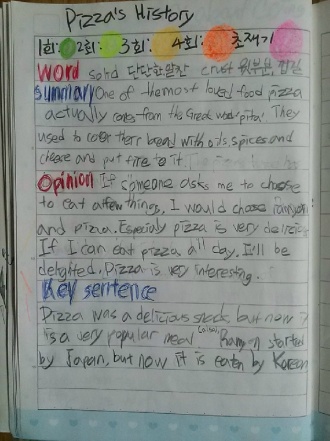 Pizza's History
1회: 2회: 3회: 4회: 초재기
Word solid 단단한 crust 껍질
Summary One of themost loved food pizza
actually comes from the Greek word pita. They
used to cover there bread with oils, spices and
cheese and put fire to it.
Opinion If someone asks me to choose
to eat afew things, I would choose ramyon
and pizza. Especialy pizza is very delicious
If I can eat pizza all day, I'll be
delighted. Pizza is very interesting.
Key sentence
Pizza was a delicious snack but now it
is a very popular meal Ramyon started
by Japan, but now it is eaten by Korean